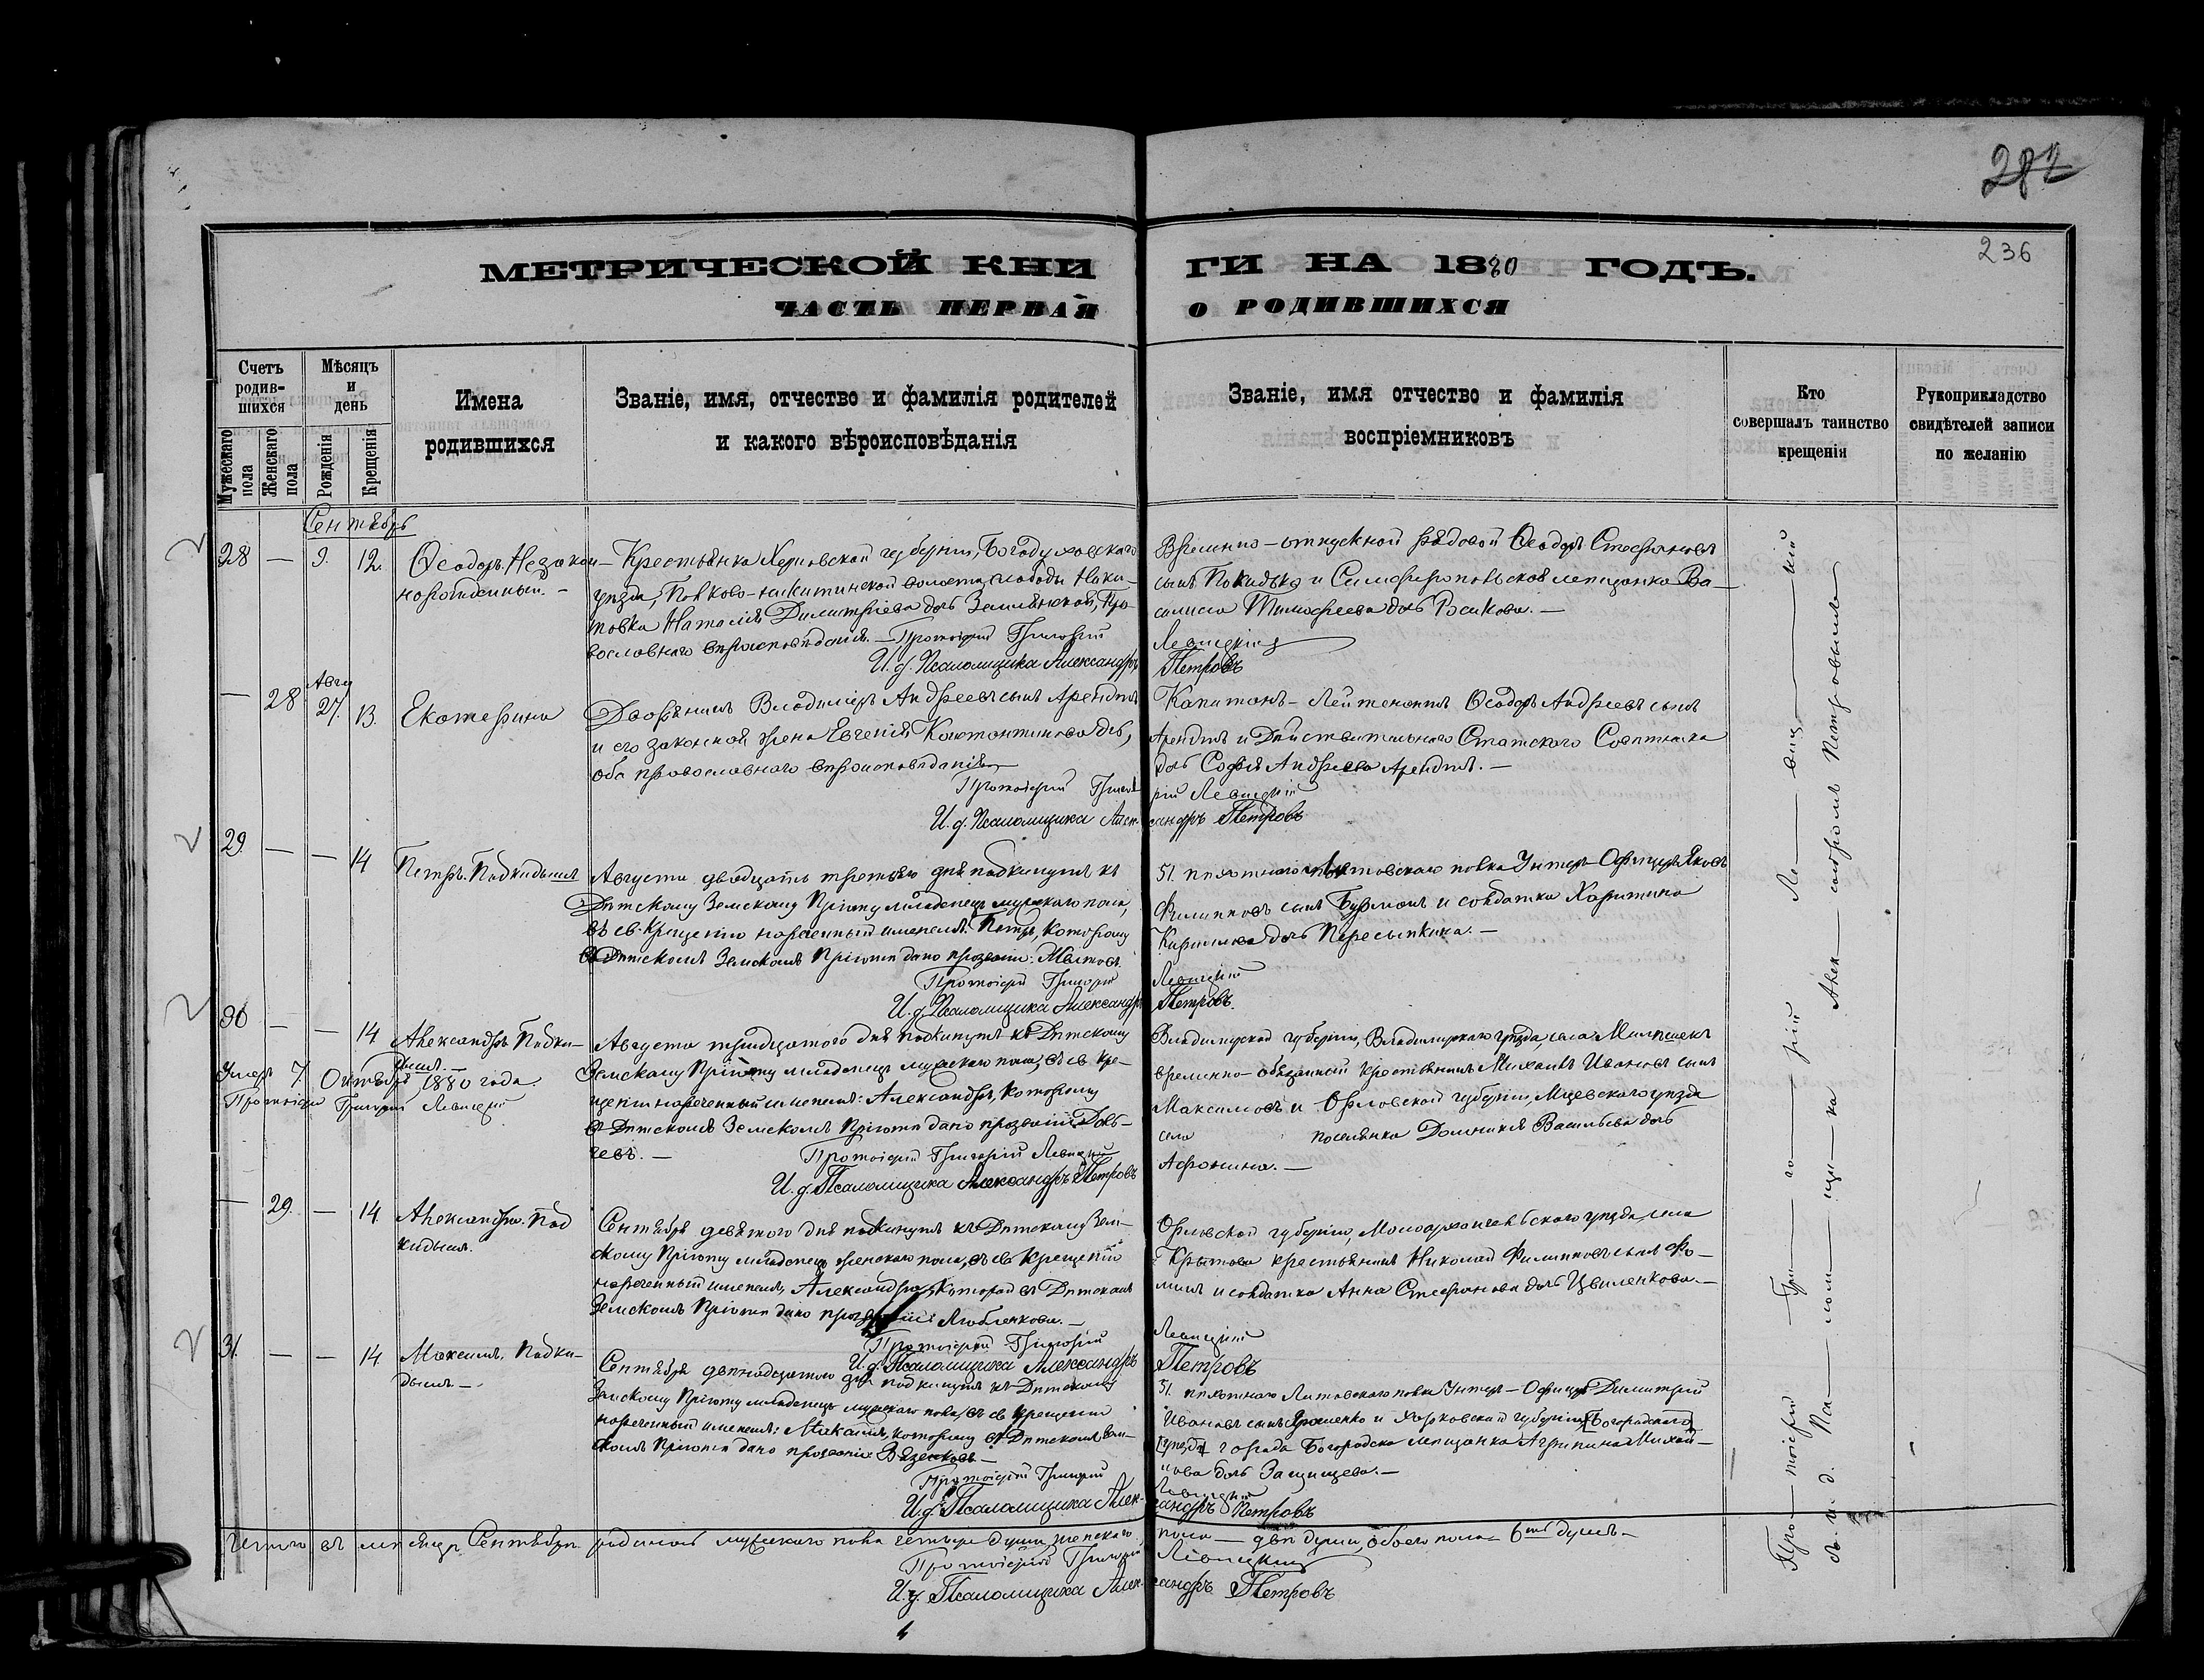 282
236
МЕТРИЧЕСКОЙ КНИ
ГИ НА 1880 ГОДЪ.
ЧАСТЬ ПЕРВАЯ
О РОДИВШИХСЯ
Счетъ родив-шихся
Мѣсяцъ и день
Мужескаго пола
Женскаго пола
Рожденія
Крещенія
Имена родившихся
Званіе, имя, отчество и фамилія родителей
и какого вѣроисповѣданія
Званіе, имя отчество и фамилія
воспріемниковъ
Кто совершалъ таинство крещенія
Рукоприкладство свидѣтелей записи по желанію
Сентябрь
28 — 9. 12.
Ѳеодоръ. Незакон-
норожденный. —
Крестьянка Харьковской губерніи, Богодуховскаго
уѣзда, волости, слободы Ники-
товки Наталія Димитріева дочь Землянская, Пра-
вославнаго вѣроисповѣданія. — Протоіерей Григорій
И. д. Псаломщика Александръ
Временно-отпускной рядовой Ѳеодоръ Стефановъ
сынъ и Симферопольская мещанка Ва-
силиса Тимофеева дочь Волкова. —
Левицкій
Петровъ
— 28 Авгу 27. 13.
Екатерина
Дворянинъ Владиміръ Андреевъ сынъ Арендтъ
и его законная жена Евгенія Константинова дочь,
оба православнаго вѣроисповѣданія
Протоіерей Григо
И. д. Псаломщика Алек-
Капитанъ-Лейтенантъ Ѳеодоръ Андреевъ сынъ
Арендтъ и Дѣйствительнаго Статскаго Совѣтника
дочь Софія Андреева Арендтъ. —
рій Левицкій
сандръ Петровъ
29. — — 14
Петръ. Подкидышъ
Августа двадцать третьяго дня подкинутъ къ
Дѣтскому Земскому Пріюту младенецъ мужскаго пола,
въ св. Крещеніи нареченный именемъ: Петръ, которому
въ Дѣтскомъ Земскомъ Пріютѣ дано прозваніе:
Протоіерей Григорій
И. д. Псаломщика Александръ
51. пѣхотнаго Литовскаго полка Унтеръ-Офицеръ Яковъ
Филипповъ сынъ и солдатка Харитина
дочь Пересыпкина. —
Левицкій
Петровъ.
30 — — 14
Александръ Подки-
дышъ. —
Умеръ 7. Октября 1880 года.
Протоіерей Григорій Левицкій
Августа тридцатого дня подкинутъ къ Дѣтскому
Земскому Пріюту младенецъ мужскаго пола, въ св. Кре-
щеніи нареченный именемъ: Александръ, которому
въ Дѣтскомъ Земскомъ Пріютѣ дано прозваніе
Протоіерей Григорій Левицкій
И. д. Псаломщика Александръ Петровъ
Владимірской губерніи, Владимірскаго уѣзда, села
временно-обязанный крестьянинъ Михаилъ Ивановъ сынъ
Максимовъ и Орловской губерніи, Мценскаго уѣзда
села поселянка Домникія Васильева дочь
Афонина. —
— 29. — 14
Александра. Под
кидышъ.
Сентября девятого дня подкинутъ къ Дѣтскому Зем-
скому Пріюту младенецъ женскаго пола, въ св. Крещеніи
нареченный именемъ, Александра, которой въ Дѣтскомъ
Земскомъ Пріютѣ дано прозваніе —
Протоіерей Григорій
И. д. Псаломщика Александръ
Орловской губерніи, Малоархангельскаго уѣзда, села
крестьянинъ Николай Филипповъ сынъ Фо-
минъ и солдатка Анна Стефанова дочь Цвиленкова. —
Левицкій
Петровъ
31. — — 14
Максимъ, Подки-
дышъ —
Сентября двѣнадцатого дня подкинутъ къ Дѣтскому
Земскому Пріюту младенецъ мужскаго пола, въ св. Крещеніи
нареченный именемъ: Максимъ, которому въ Дѣтскомъ Зем-
скомъ Пріютѣ дано прозваніе —
Протоіерей Григорій
И. д. Псаломщика Алек-
51. пѣхотнаго Литовскаго полка Унтеръ-Офицеръ Димитрій
Ивановъ сынъ и Харьковской губерніи
города мещанка Агрипина Михай-
лова дочь —
Левицкій
сандръ Петровъ
Протоіерей Григорій Левицкій
съ и. д. Псаломщика Александромъ Петровымъ
Итого въ мѣсяцѣ Сентябрѣ родилось мужскаго пола четыре души, женскаго
пола — двѣ души, обоего пола — 6ть душъ —
Протоіерей Григорій
Левицкій
И. д. Псаломщика Алек-
сандръ Петровъ